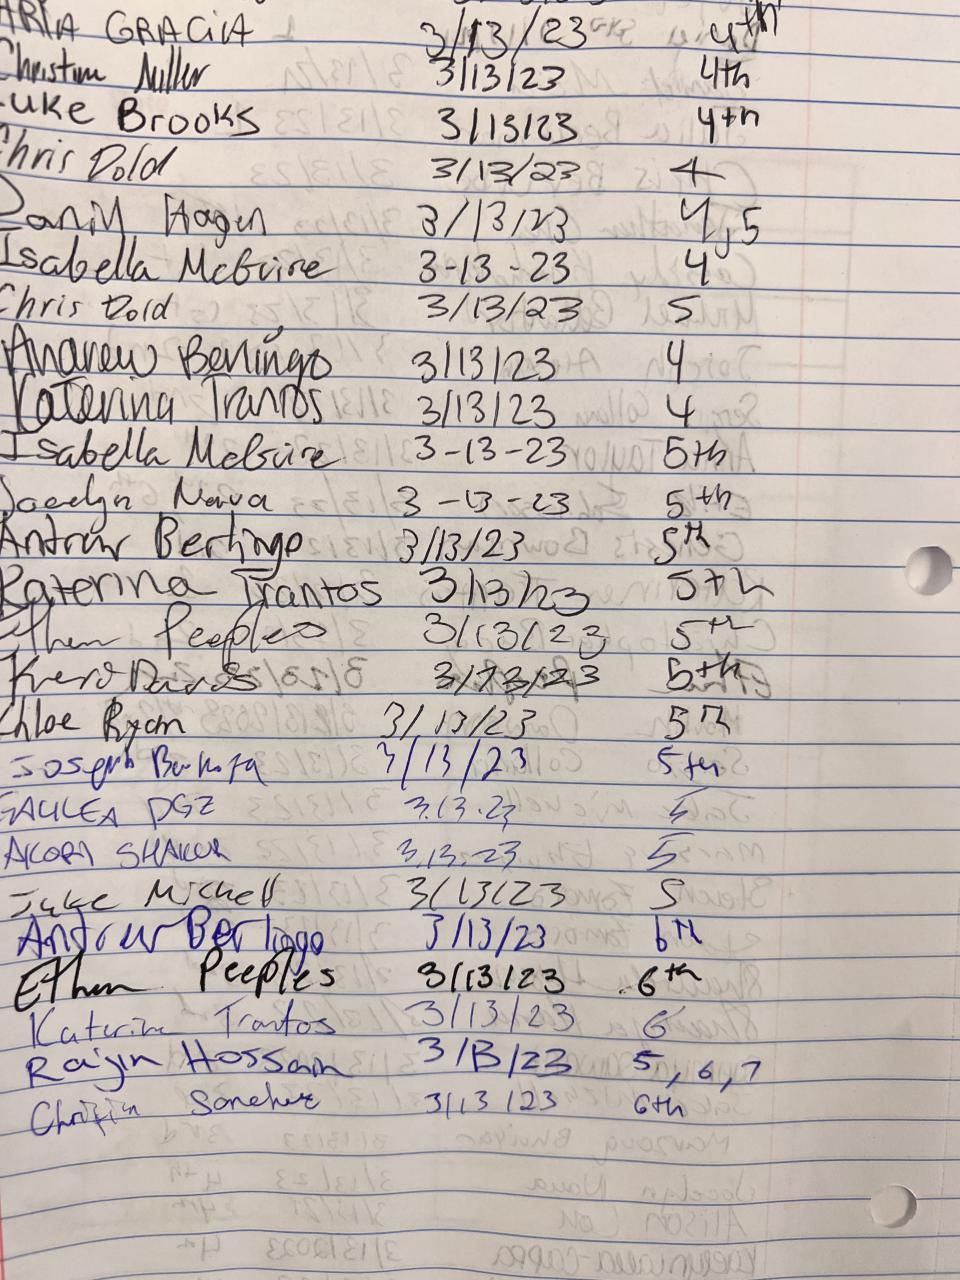 ARIA GRACIA 3/13/23 4th
Christina Miller 3/13/23 4th
Luke Brooks 3/13/23 4th
Chris Dold 3/13/23 4
Daniel Hagen 3/13/23 4,5
Isabella McGuire 3-13-23 4
Chris Dold 3/13/23 5
Andrew Berlingo 3/13/23 4
Katerina Trantos 3/13/23 4
Isabella McGuire 3-13-23 5th
Jocelyn Nava 3-13-23 5th
Andrew Berlingo 3/13/23 5th
Katerina Trantos 3/13/23 5th
Ethan Peeples 3/13/23 5th
3/13/23 5th
Chloe Ryan 3/13/23 5th
Joseph 3/13/23 5th
GALILEA DGZ 3.13.23 5
AKORA SHAKUR 3.13.23 5
Jake Michell 3/13/23 5
Andrew Berlingo 3/13/23 6th
Ethan Peeples 3/13/23 6th
Katerina Trantos 3/13/23 6
Raiyin Hossain 3/13/23 5, 6, 7
Christian Sanchez 3/13/23 6th